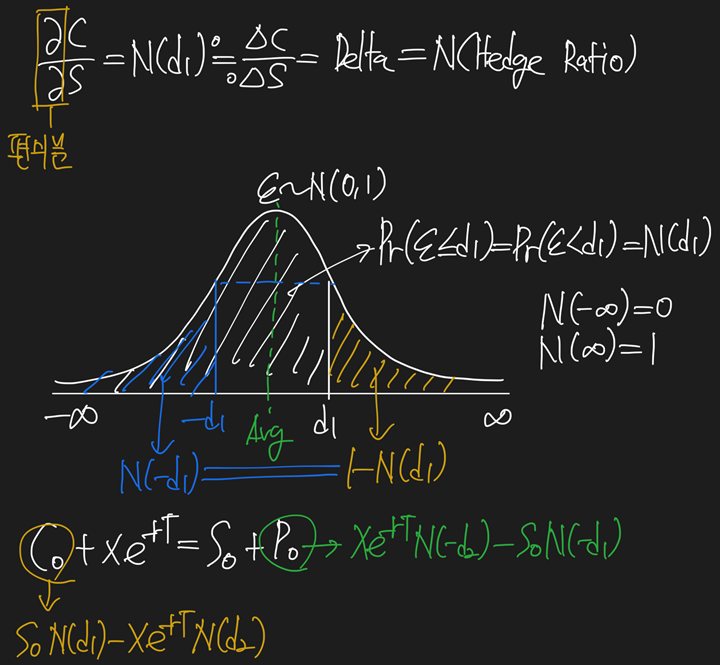 ∂C/∂S = N(d1) ≒ ΔC/ΔS = Delta = N(Hedge Ratio)
편미분
ε~N(0,1)
Pr(ε≤d1)=Pr(ε<d1)=N(d1)
N(-∞)=0
N(∞)=1
-∞ -d1 Avg d1 ∞
N(-d1) 1-N(d1)
C₀+Xe^-rT=S₀+P₀→Xe^-rTN(-d2)-S₀N(-d1)
S₀N(d1)-Xe^-rTN(d2)